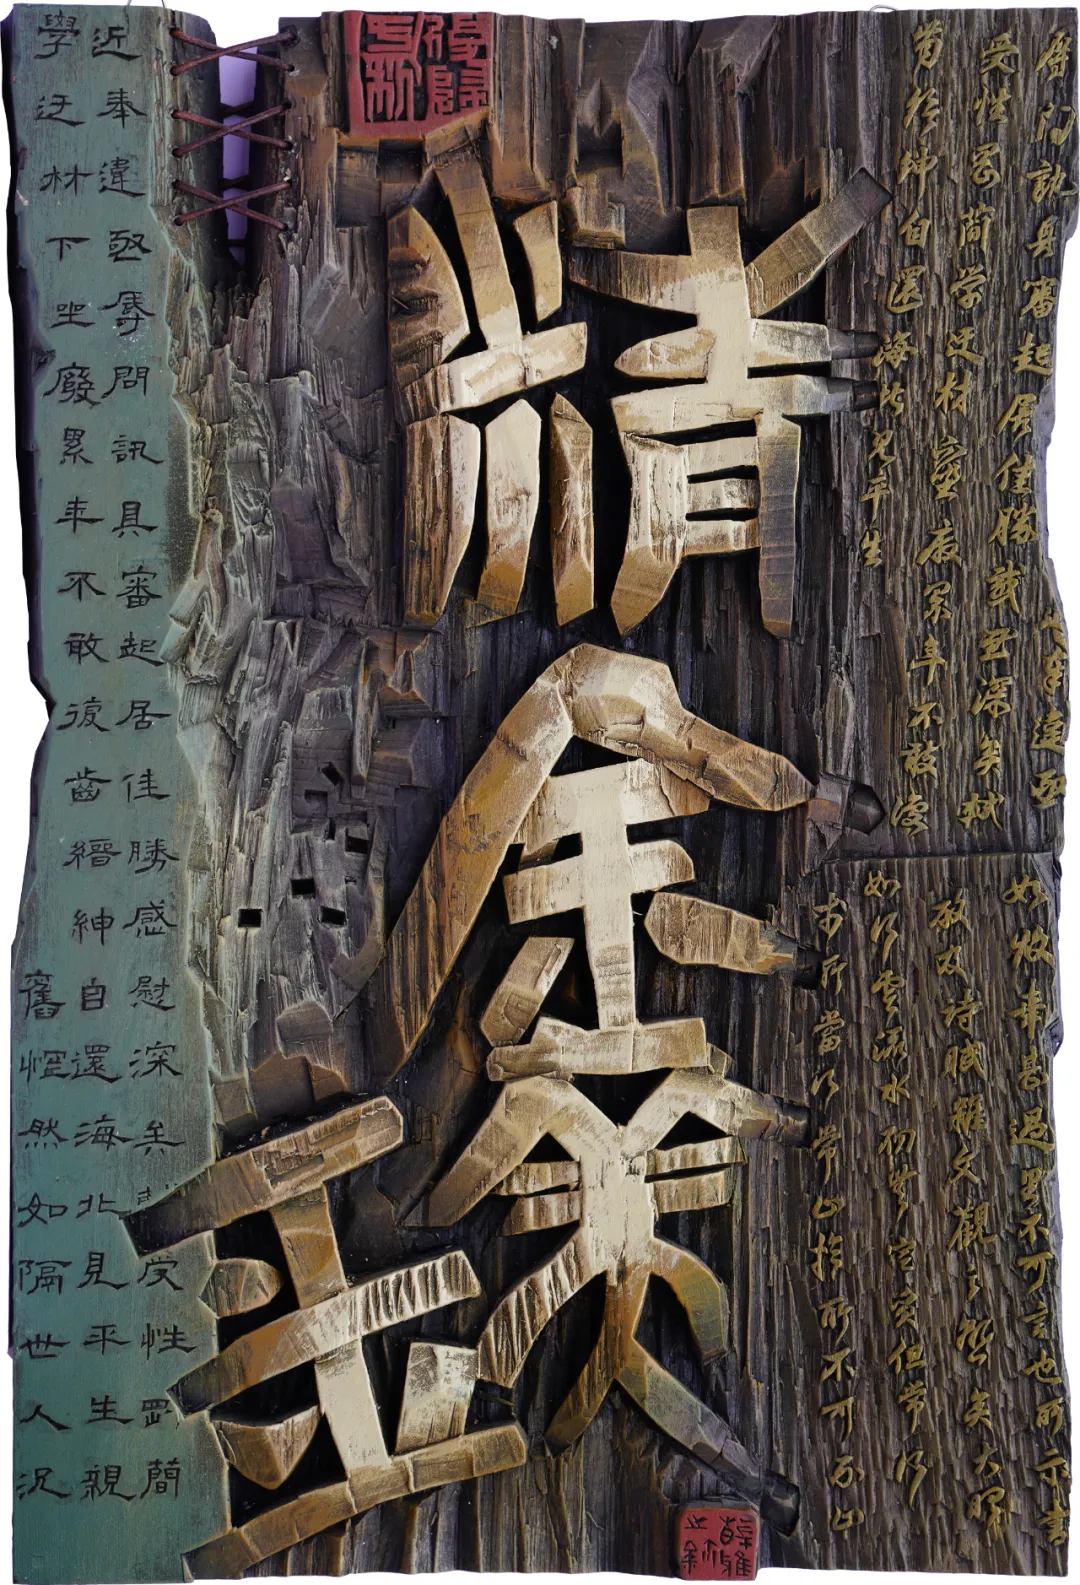 精金美玉
近奉違亟
辱問訊具審起居佳勝感慰深矣軾
受性剛簡学迂材下坐廢累年不敢復
齒縉紳自還海北見平生
數賜車甚過望不可言也所示書
教及詩賦雜文觀之熟矣大略
如行雲流水初無定質但常行
於所當行常止於所不可不止
近奉違亟辱問訊具審起居佳勝感慰深矣軾受性剛簡
學迂材下坐廢累年不敢復齒縉紳自還海北見平生親
舊惘然如隔世人況